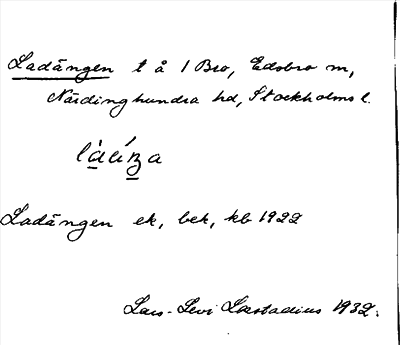 Ladängen t å 1 Bro, Edsbro sn,
Närdinghundra hd, Stockholms l.
Ladängen ek, bek, kb 1922
Lars-Levi Læstadius 1932.